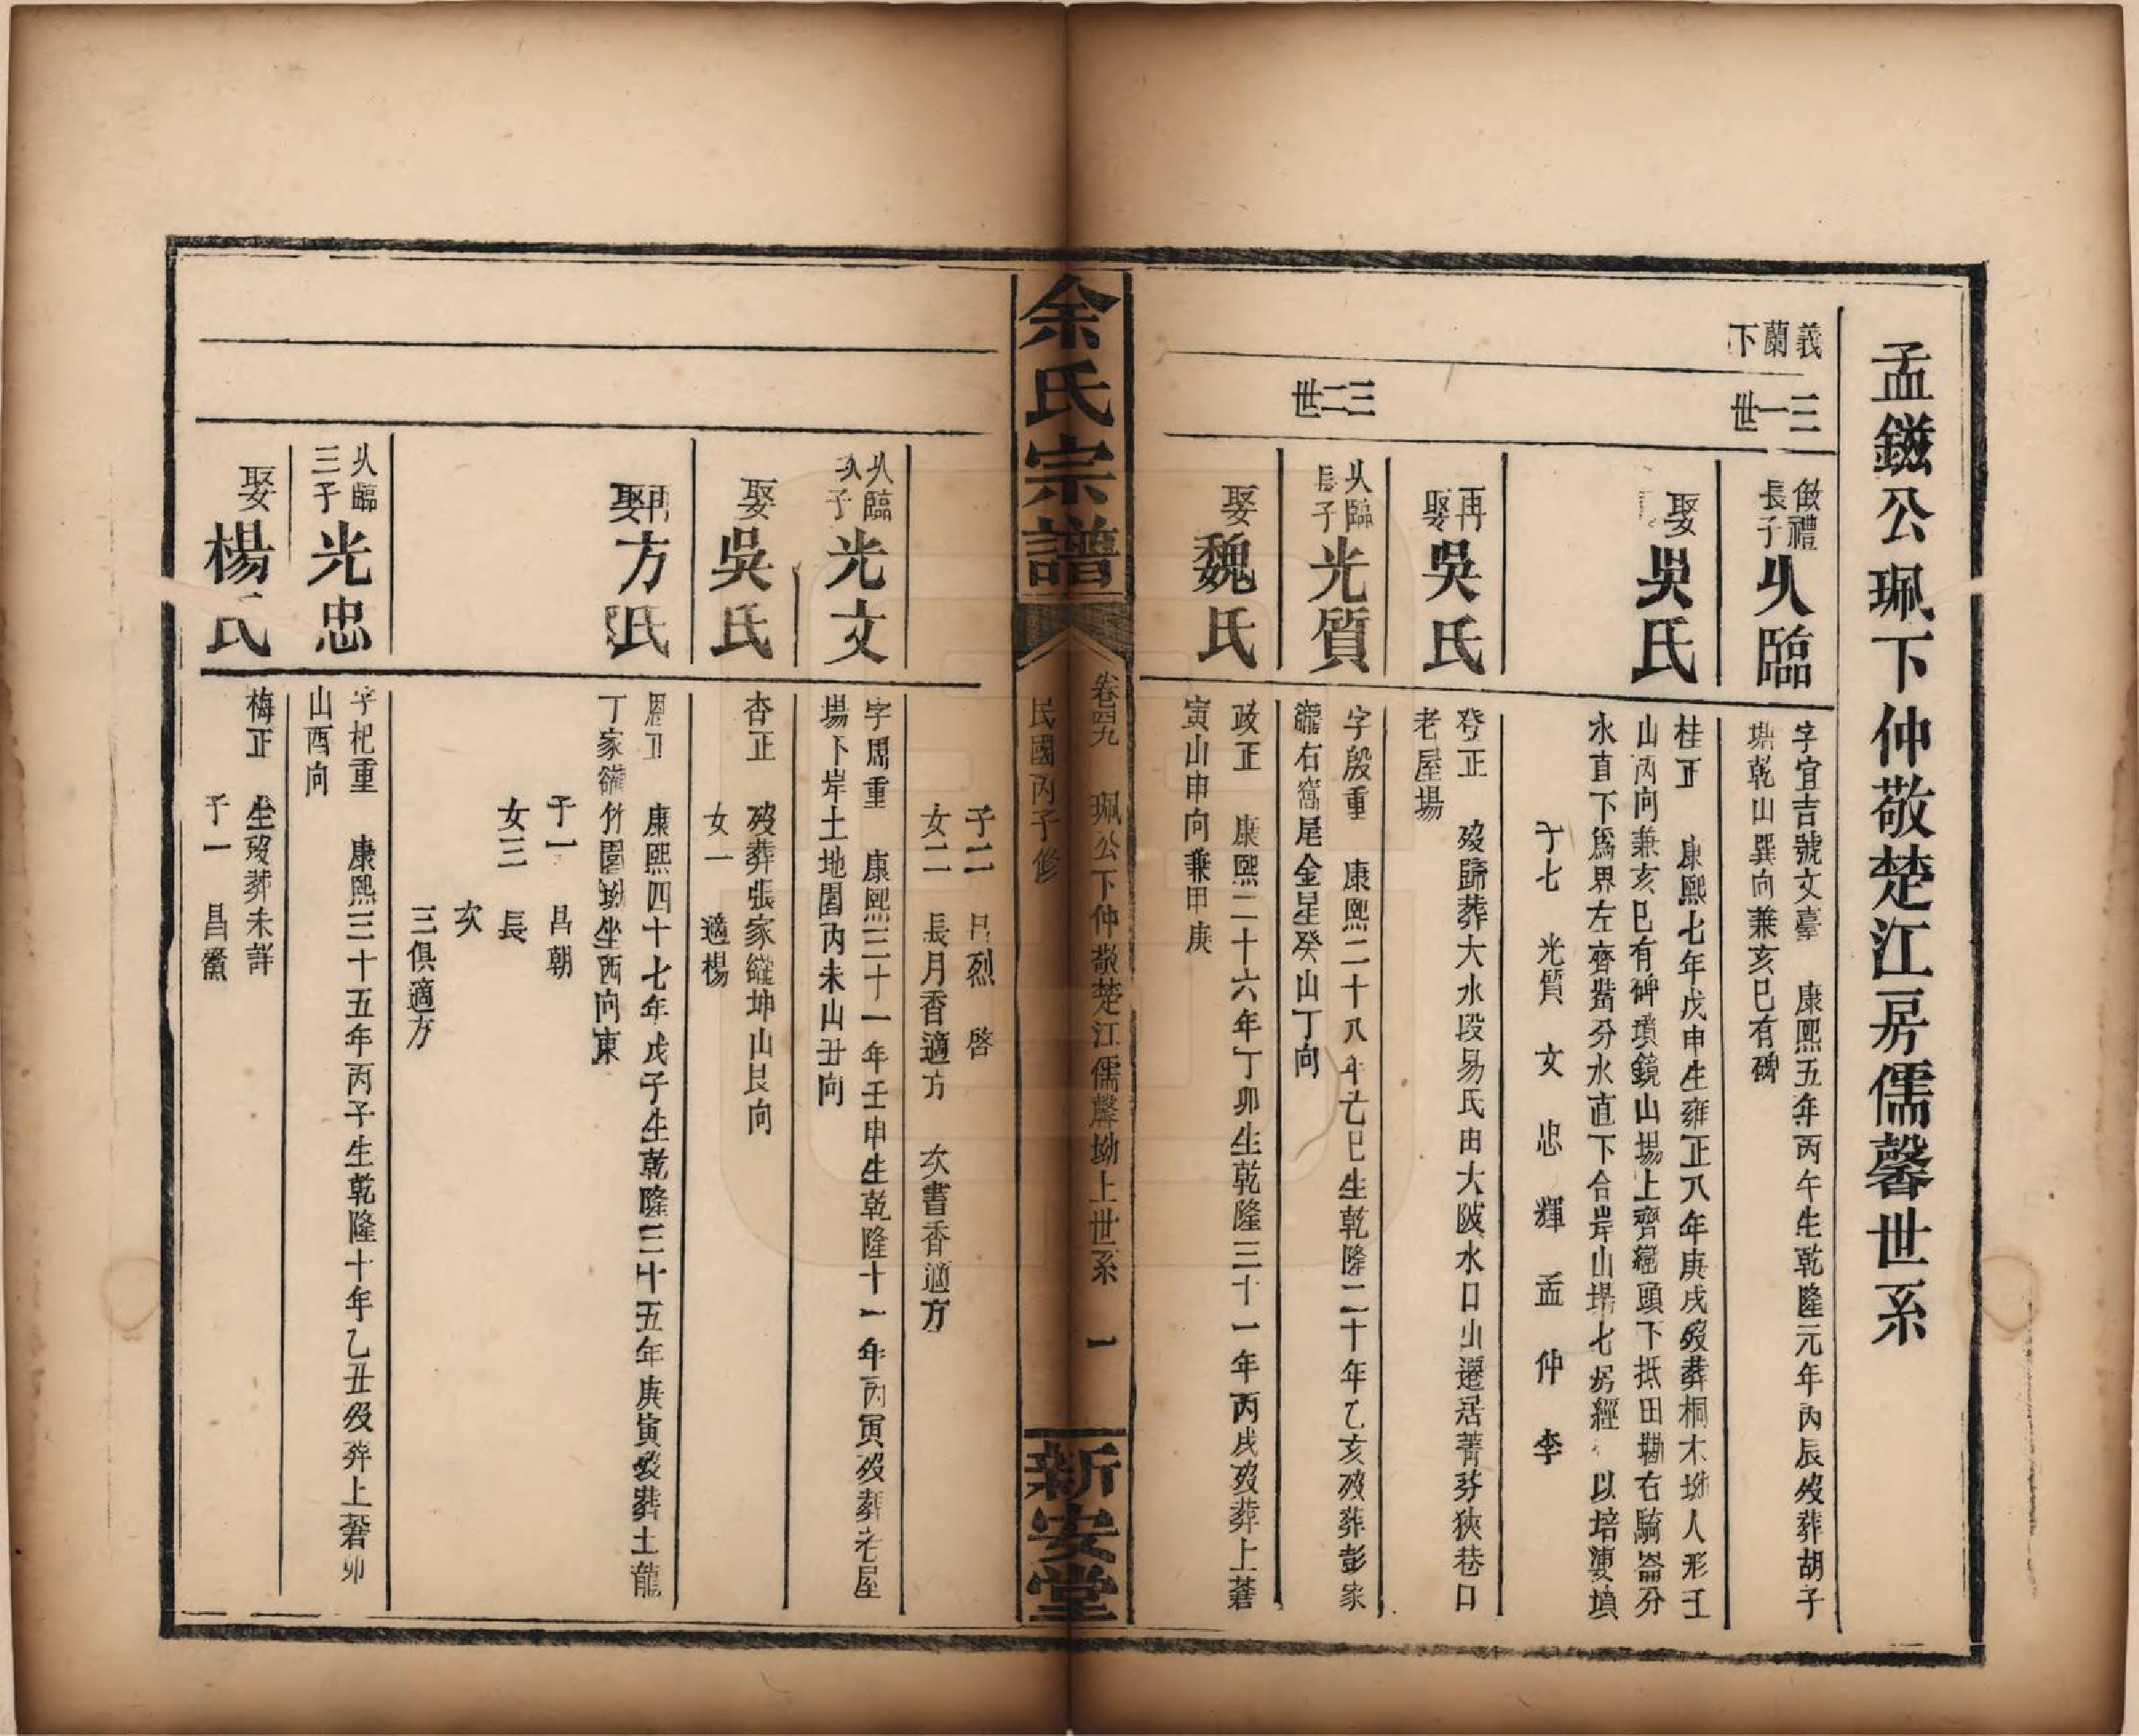 孟鎡公珮下仲敬楚江房儒馨世系
義蘭下
三一世
倣禮長子
乆臨
字宜吉號文臺 康熙五年丙午生乾隆元年丙辰歿葬胡子
塝乾山巽向兼亥巳有碑
娶吳氏
桂正 康熙七年戊申生雍正八年庚戌歿葬桐木坳人形壬
山丙向兼亥巳有碑瓆鏡山場上齊龍頭下抵田塝右騎崙分
水直下為界左齊嘴分水直下合岸山場七房經 以培更墳
子七 光質 文 忠 輝 孟 仲 李
再娶吳氏
登正 歿歸葬大水段易氏由大陂水口山遷居菁芬狹巷口
老屋場
三二世
乆臨長子
光質
字殷重 康熙二十八年乙巳生乾隆二十年乙亥歿葬彭家
龍右窩尾金星癸山丁向
娶魏氏
政正 康熙二十六年丁卯生乾隆三十一年丙戌歿葬上礬
寅山申向兼甲庚
余氏宗譜
卷四九 珮公下仲敬楚江儒馨坳上世系 一
民國丙子修
新安堂
子二 昌烈 啓
女二 長月香適方 次書香適方
乆臨次子
光文
字周重 康熙三十一年壬申生乾隆十一年丙寅歿葬老屋
場下岸土地園內未山丑向
娶吳氏
杏正 歿葬張家巃坤山艮向
女一 適楊
再娶方氏
周正 康熙四十七年戊子生乾隆三十五年庚寅歿葬土龍
丁家巃竹園坳坐西向東
子一 昌朝
女三 長
次
三俱適方
乆臨三子
光忠
字杞重 康熙三十五年丙子生乾隆十年乙丑歿葬上礬卯
山酉向
娶楊氏
梅正 生歿葬未詳
子一 昌黌